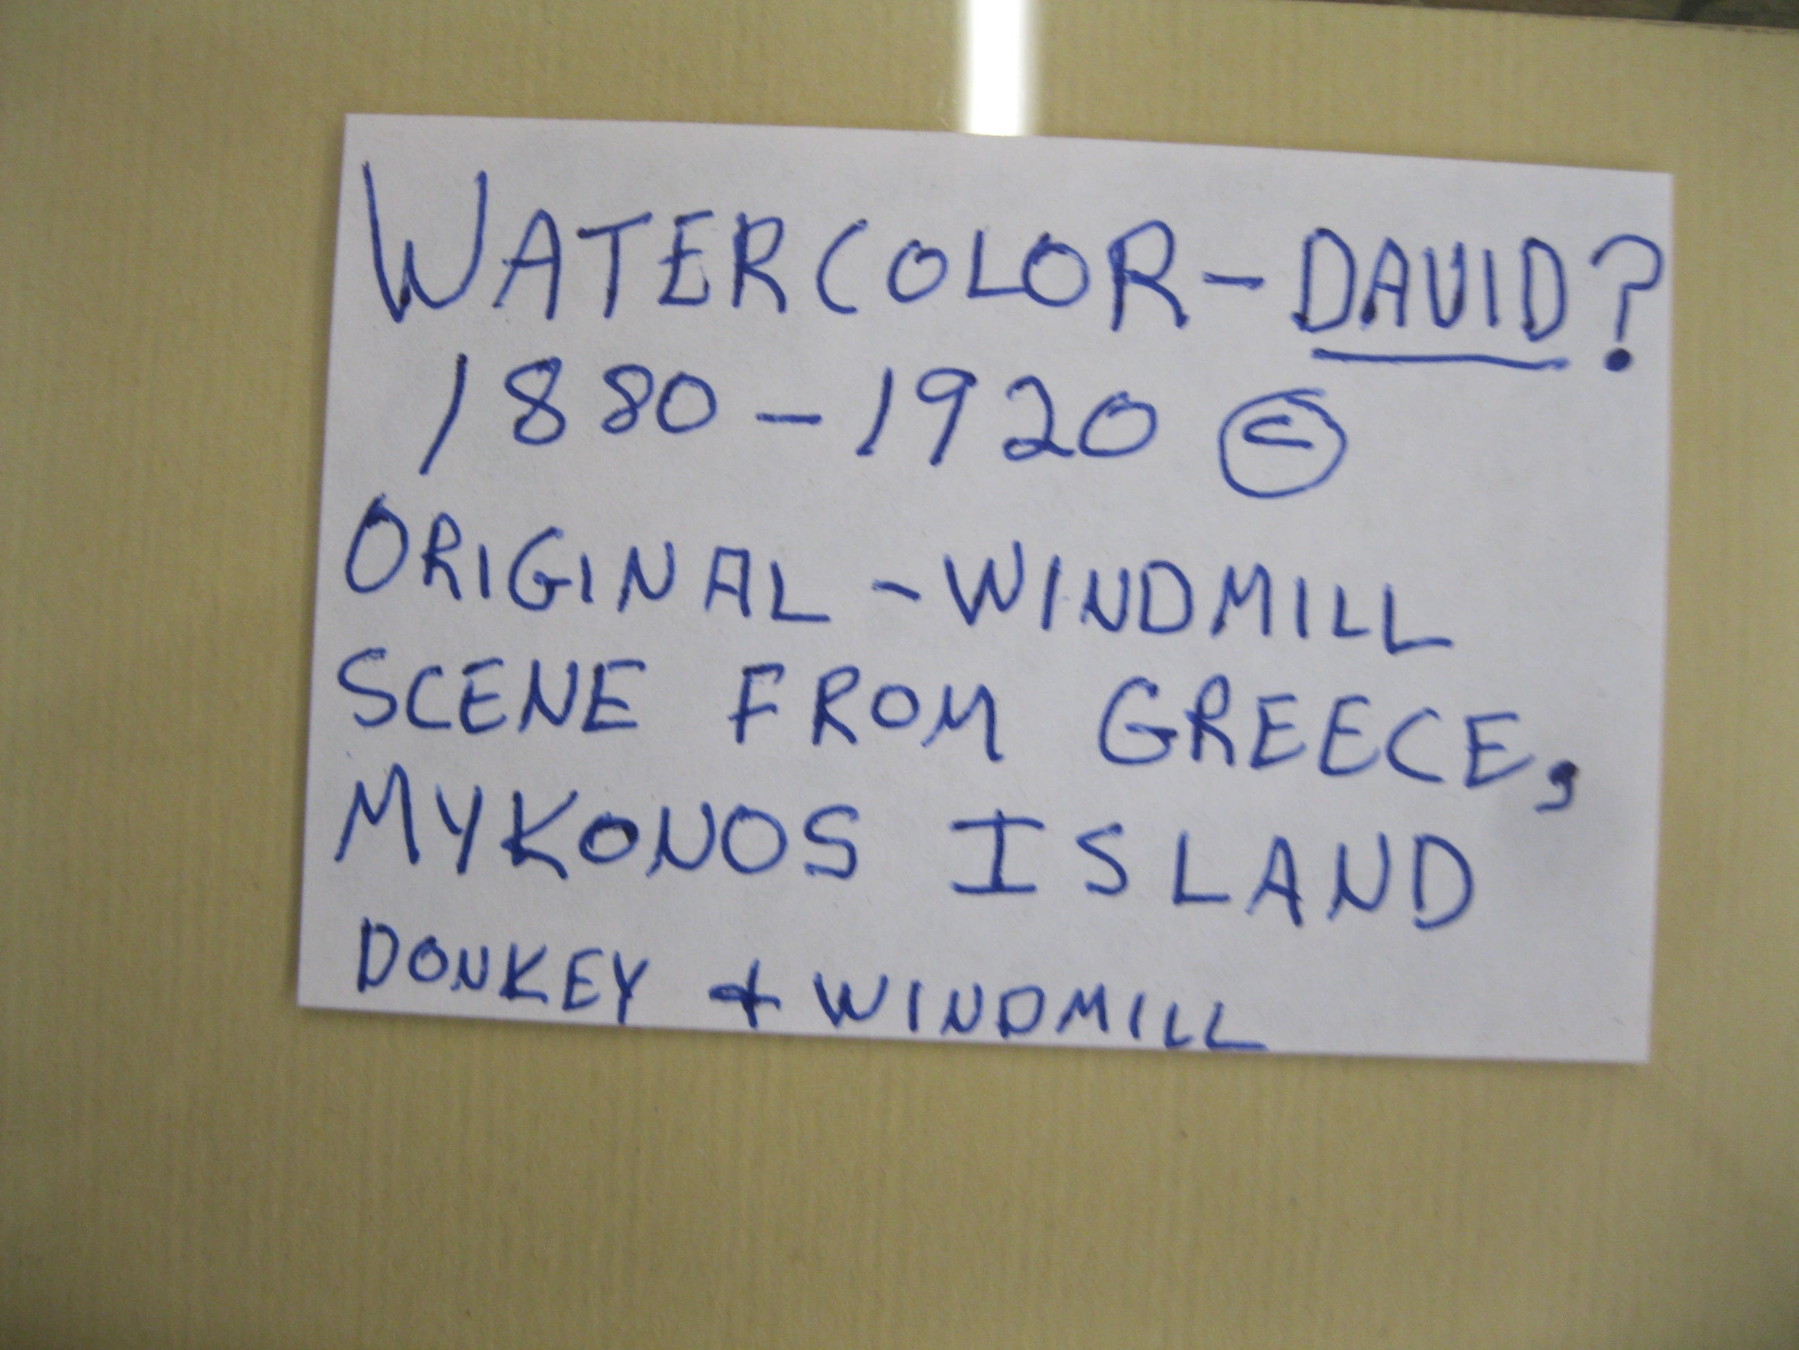 WATERCOLOR - DAVID?
1880 - 1920 ©
ORIGINAL - WINDMILL
SCENE FROM GREECE,
MYKONOS ISLAND
DONKEY & WINDMILL